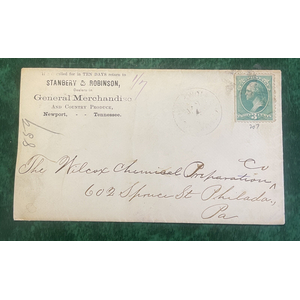 for in TEN DAYS return to
STANBERY & ROBINSON,
General Merchandise
AND COUNTRY PRODUCE,
Newport, - - Tennessee.
1/17
859
The Wilcox Chemical Preparation Co
602 Spruce St Philada,
Pa
3
207